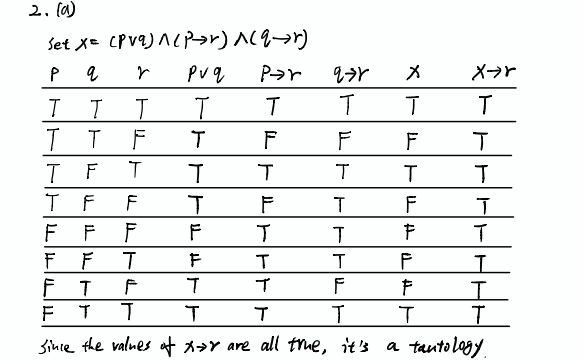 2. (a)
Set X = (p∨q)∧(p→r)∧(q→r)
p q r p∨q p→r q→r X X→r
T T T T T T T T
T T F T F F F T
T F T T T T T T
T F F T F T F T
F F F F T T F T
F F T F T T F T
F T F T T F F T
F T T T T T T T
Since the values of X→r are all true, it's a tautology